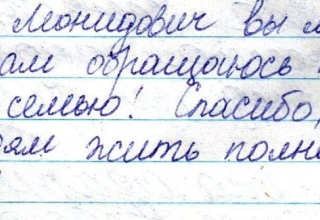 Леонидович вы
ам обращаюсь
семью! Спасибо,
ям жить полн